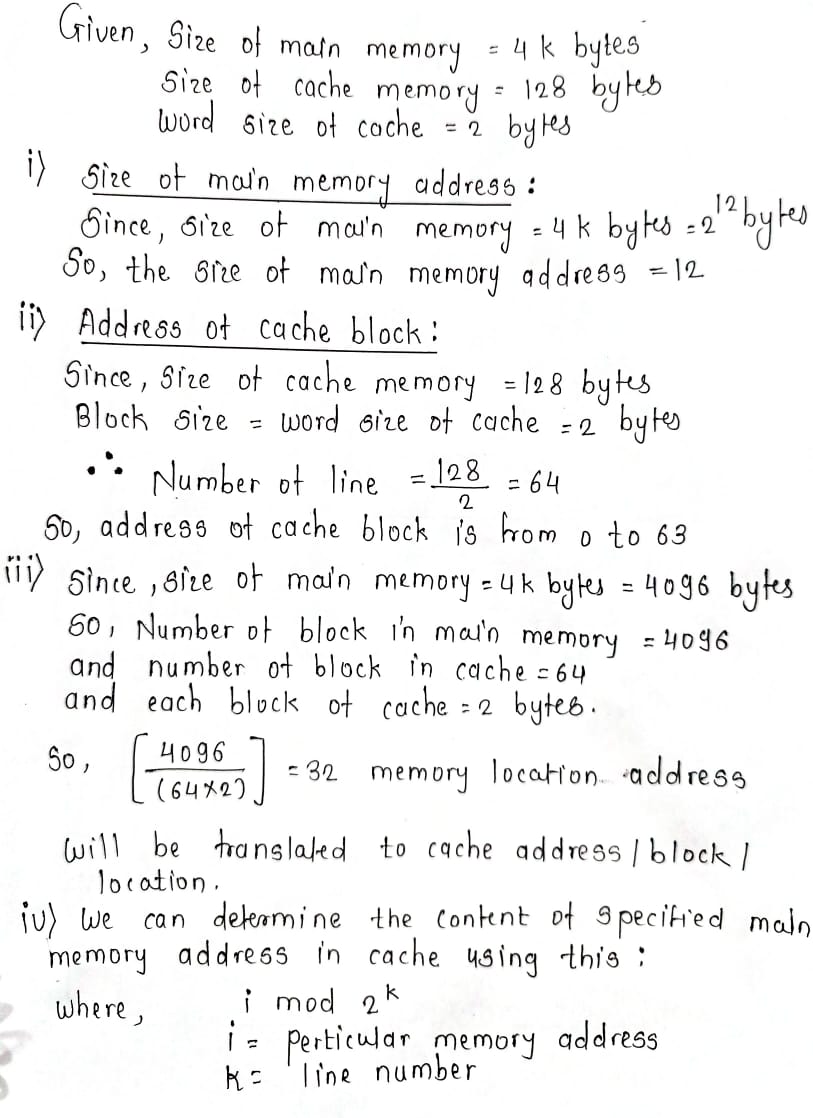 Given, Size of main memory = 4 k bytes
Size of cache memory = 128 bytes
Word size of cache = 2 bytes
i) Size of main memory address :
Since, size of main memory = 4 k bytes = 2^12 bytes
So, the size of main memory address = 12
ii) Address of cache block :
Since, size of cache memory = 128 bytes
Block size = word size of cache = 2 bytes
∴ Number of line = 128/2 = 64
So, address of cache block is from 0 to 63
iii) Since, size of main memory = 4 k bytes = 4096 bytes
So, Number of block in main memory = 4096
and number of block in cache = 64
and each block of cache = 2 bytes.
So, [4096/(64×2)] = 32 memory location address
will be translated to cache address / block /
location.
iv) We can determine the content of specified main
memory address in cache using this :
where, i mod 2^k
i = perticular memory address
k = line number